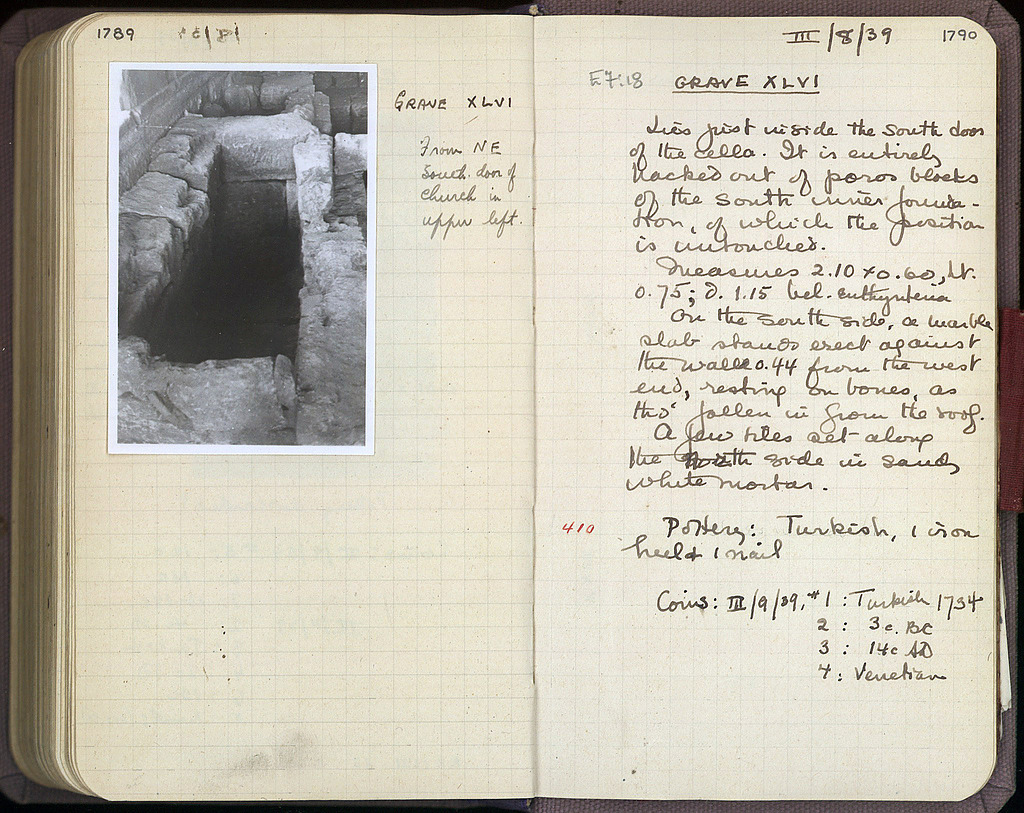 1789
GRAVE XLVI
From NE
South door of
church in
upper left.
III/8/39
1790
E7:18
GRAVE XLVI
Lies just inside the south door
of the cella. It is entirely
hacked out of poros blocks
of the south inner founda-
tion, of which the position
is untouched.
Measures 2.10 x 0.60, ht.
0.75; d. 1.15 bel. euthynteria
On the south side, a marble
slab stands erect against
the wall 0.44 from the west
end, resting on bones, as
tho' fallen in from the roof.
A few tiles set along
the side in sandy
white mortar.
410
Pottery: Turkish, 1 iron
heel & 1 nail
Coins: III/9/39, #1 : Turkish 1734
2 : 3c. BC
3 : 14c AD
4 : Venetian